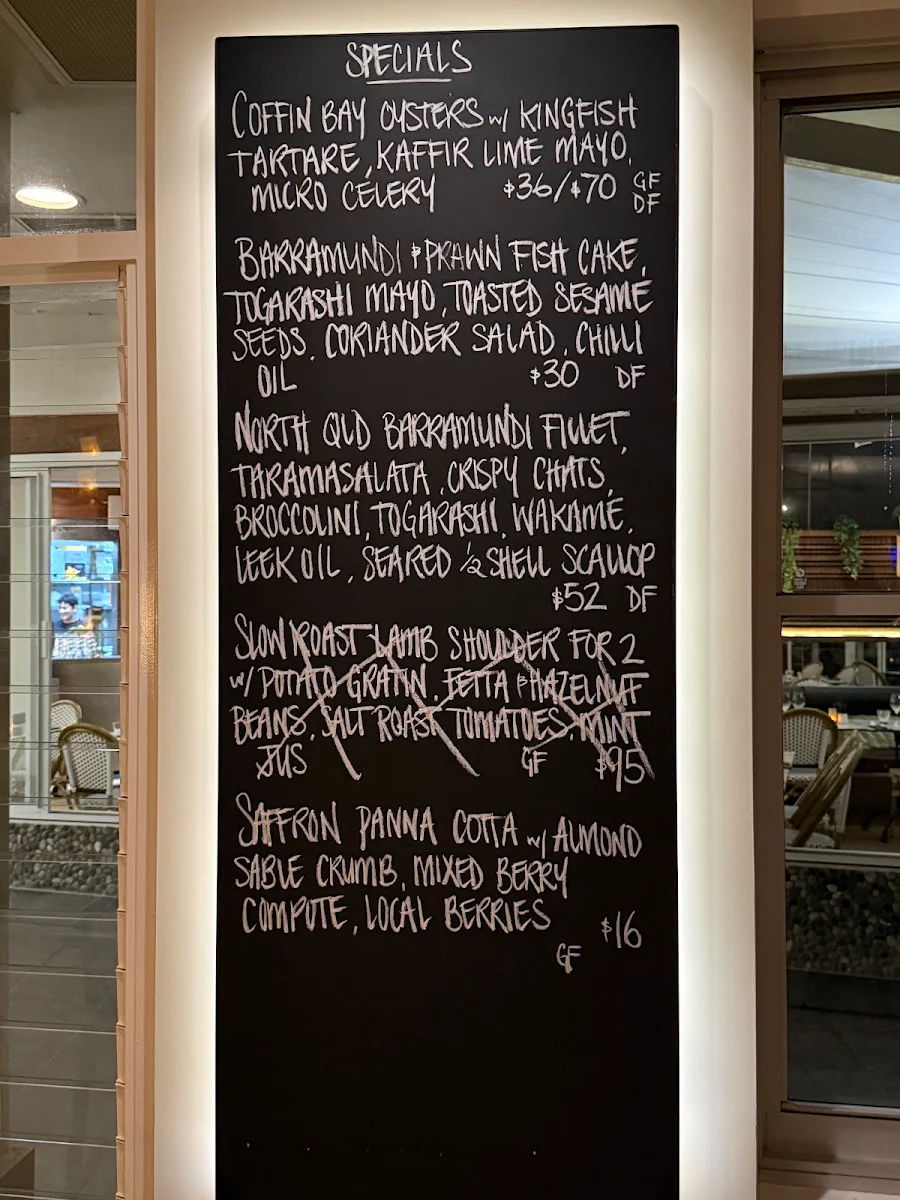 SPECIALS
COFFIN BAY OYSTERS w/ KINGFISH
TARTARE, KAFFIR LIME MAYO,
MICRO CELERY $36/$70 GF
DF
BARRAMUNDI & PRAWN FISH CAKE,
TOGARASHI MAYO, TOASTED SESAME
SEEDS, CORIANDER SALAD, CHILLI
OIL $30 DF
NORTH QLD BARRAMUNDI FILLET,
TARAMASALATA, CRISPY CHATS,
BROCCOLINI, TOGARASHI, WAKAME,
LEEK OIL, SEARED 1/2 SHELL SCALLOP
$52 DF
SLOW ROAST LAMB SHOULDER FOR 2
w/ POTATO GRATIN, FETTA & HAZELNUT
BEANS, SALT ROAST TOMATOES, MINT
JUS GF $95
SAFFRON PANNA COTTA w/ ALMOND
SABLE CRUMB, MIXED BERRY
COMPUTE, LOCAL BERRIES
$16
GF